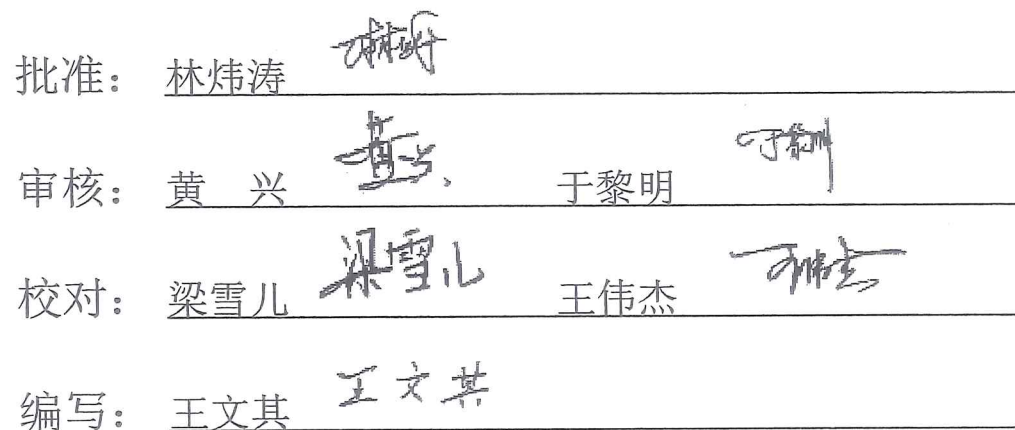 批准： 林炜涛
审核： 黄 兴 黄兴 于黎明
校对： 梁雪儿 梁雪儿 王伟杰 王伟杰
编写： 王文其 王文其